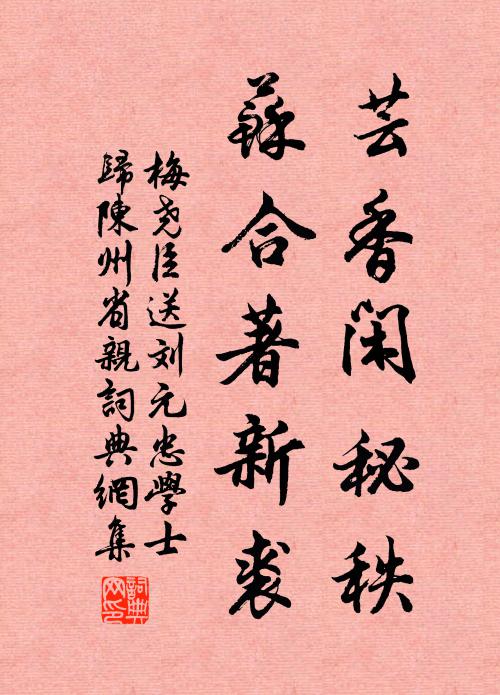 芸香閑秘秩
蘇合著新裘
梅尧臣送刘元忠學士
歸陳州省親詞典網集
詞典网印